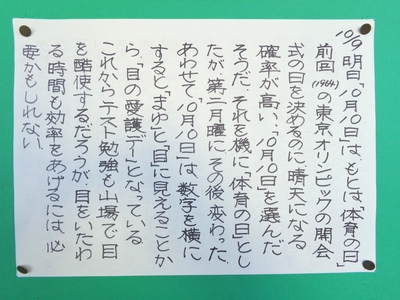 10/9 明日「10月10日」は、もとは「体育の日」
前回(1964)の東京オリンピックの開会
式の日を決めるのに、晴天になる
確率が高い、「10月10日」を選んだ
そうだ。それを機に「体育の日」とし
たが、第二月曜に、その後、変わった。
あわせて、「10月10日」は、数字を横に
すると、「まゆ」と「目」に見えることか
ら、「目の愛護デー」となっている。
これからテスト勉強も山場で、目
を酷使するだろうが、目をいたわ
る時間も効率をあげるには、必
要かもしれない。